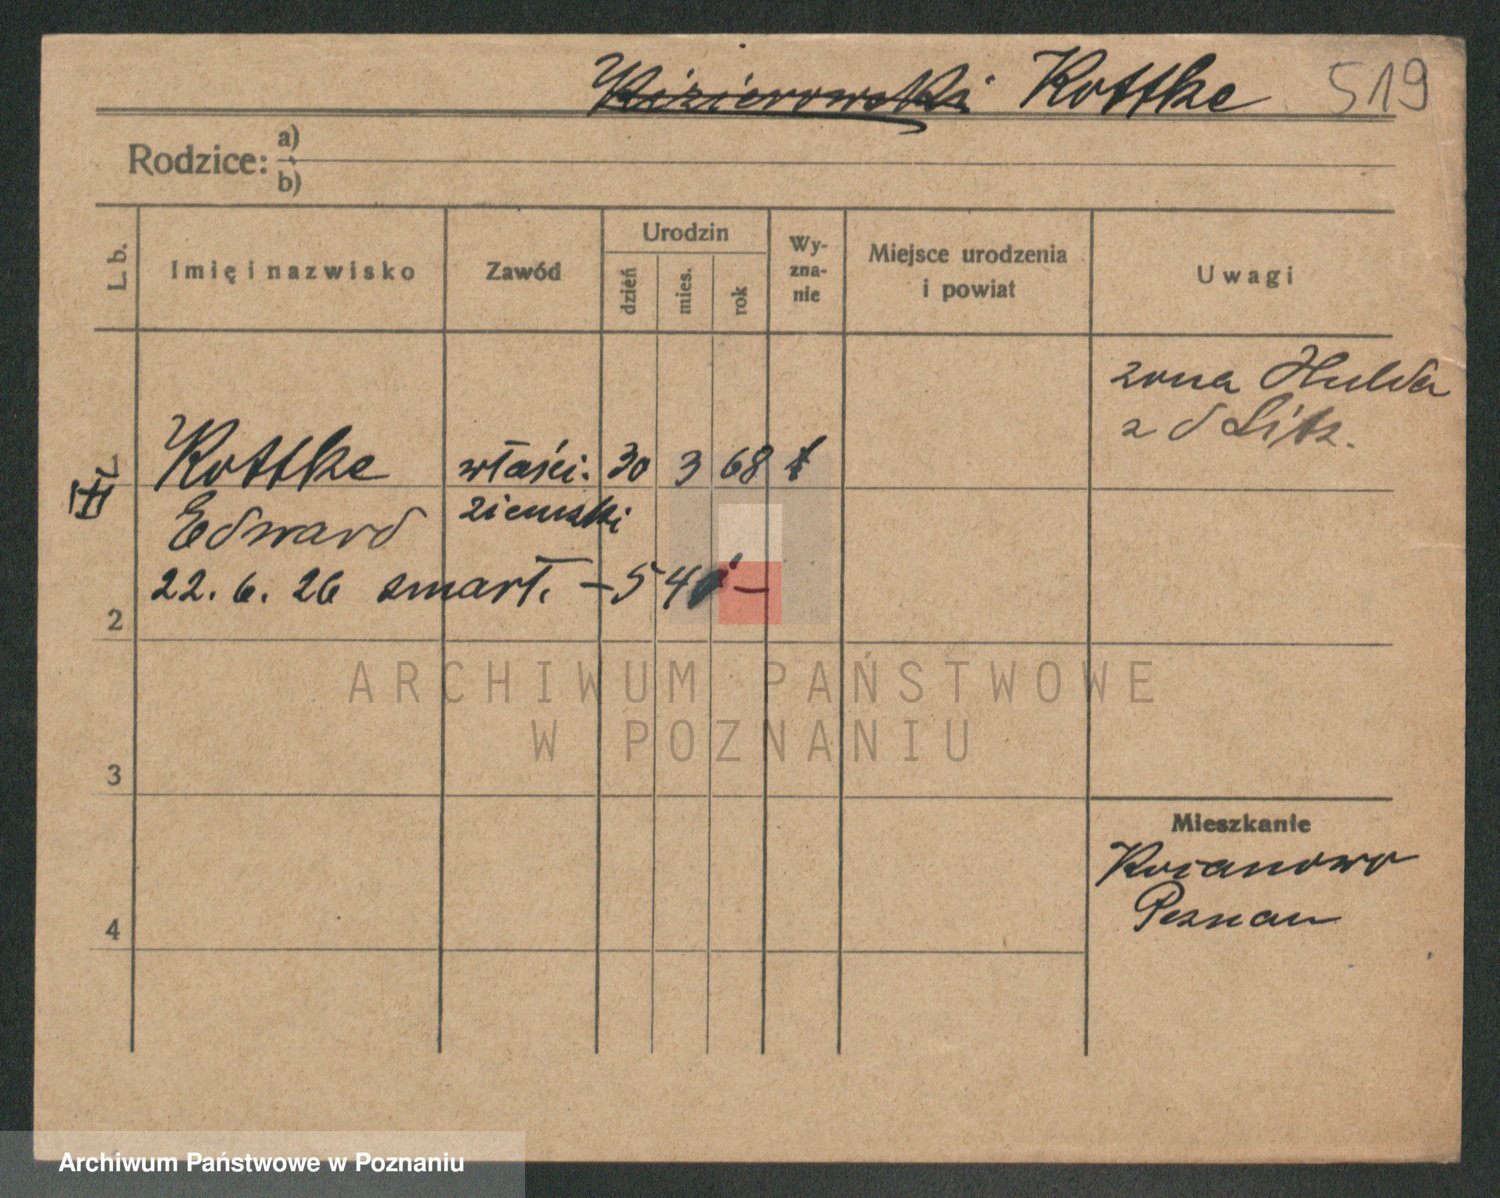 Kottke 519
Rodzice: a)
b)
L. b. Imię i nazwisko Zawód Urodzin dzień mies. rok Wy-zna-nie Miejsce urodzenia i powiat Uwagi
żona Hulda
z d Litz.
Kottke właści. 30 3 68
Edward ziemski
22. 6. 26 zmarł. – 54
2
3
4
Mieszkanie
Kocanowo
Poznań
ARCHIWUM PAŃSTWOWE
W POZNANIU
Archiwum Państwowe w Poznaniu